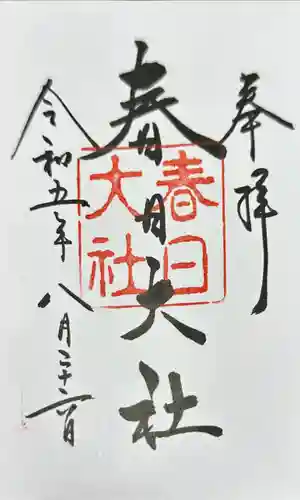 奉拝
春日大社
春日大社
令和五年八月二十二日